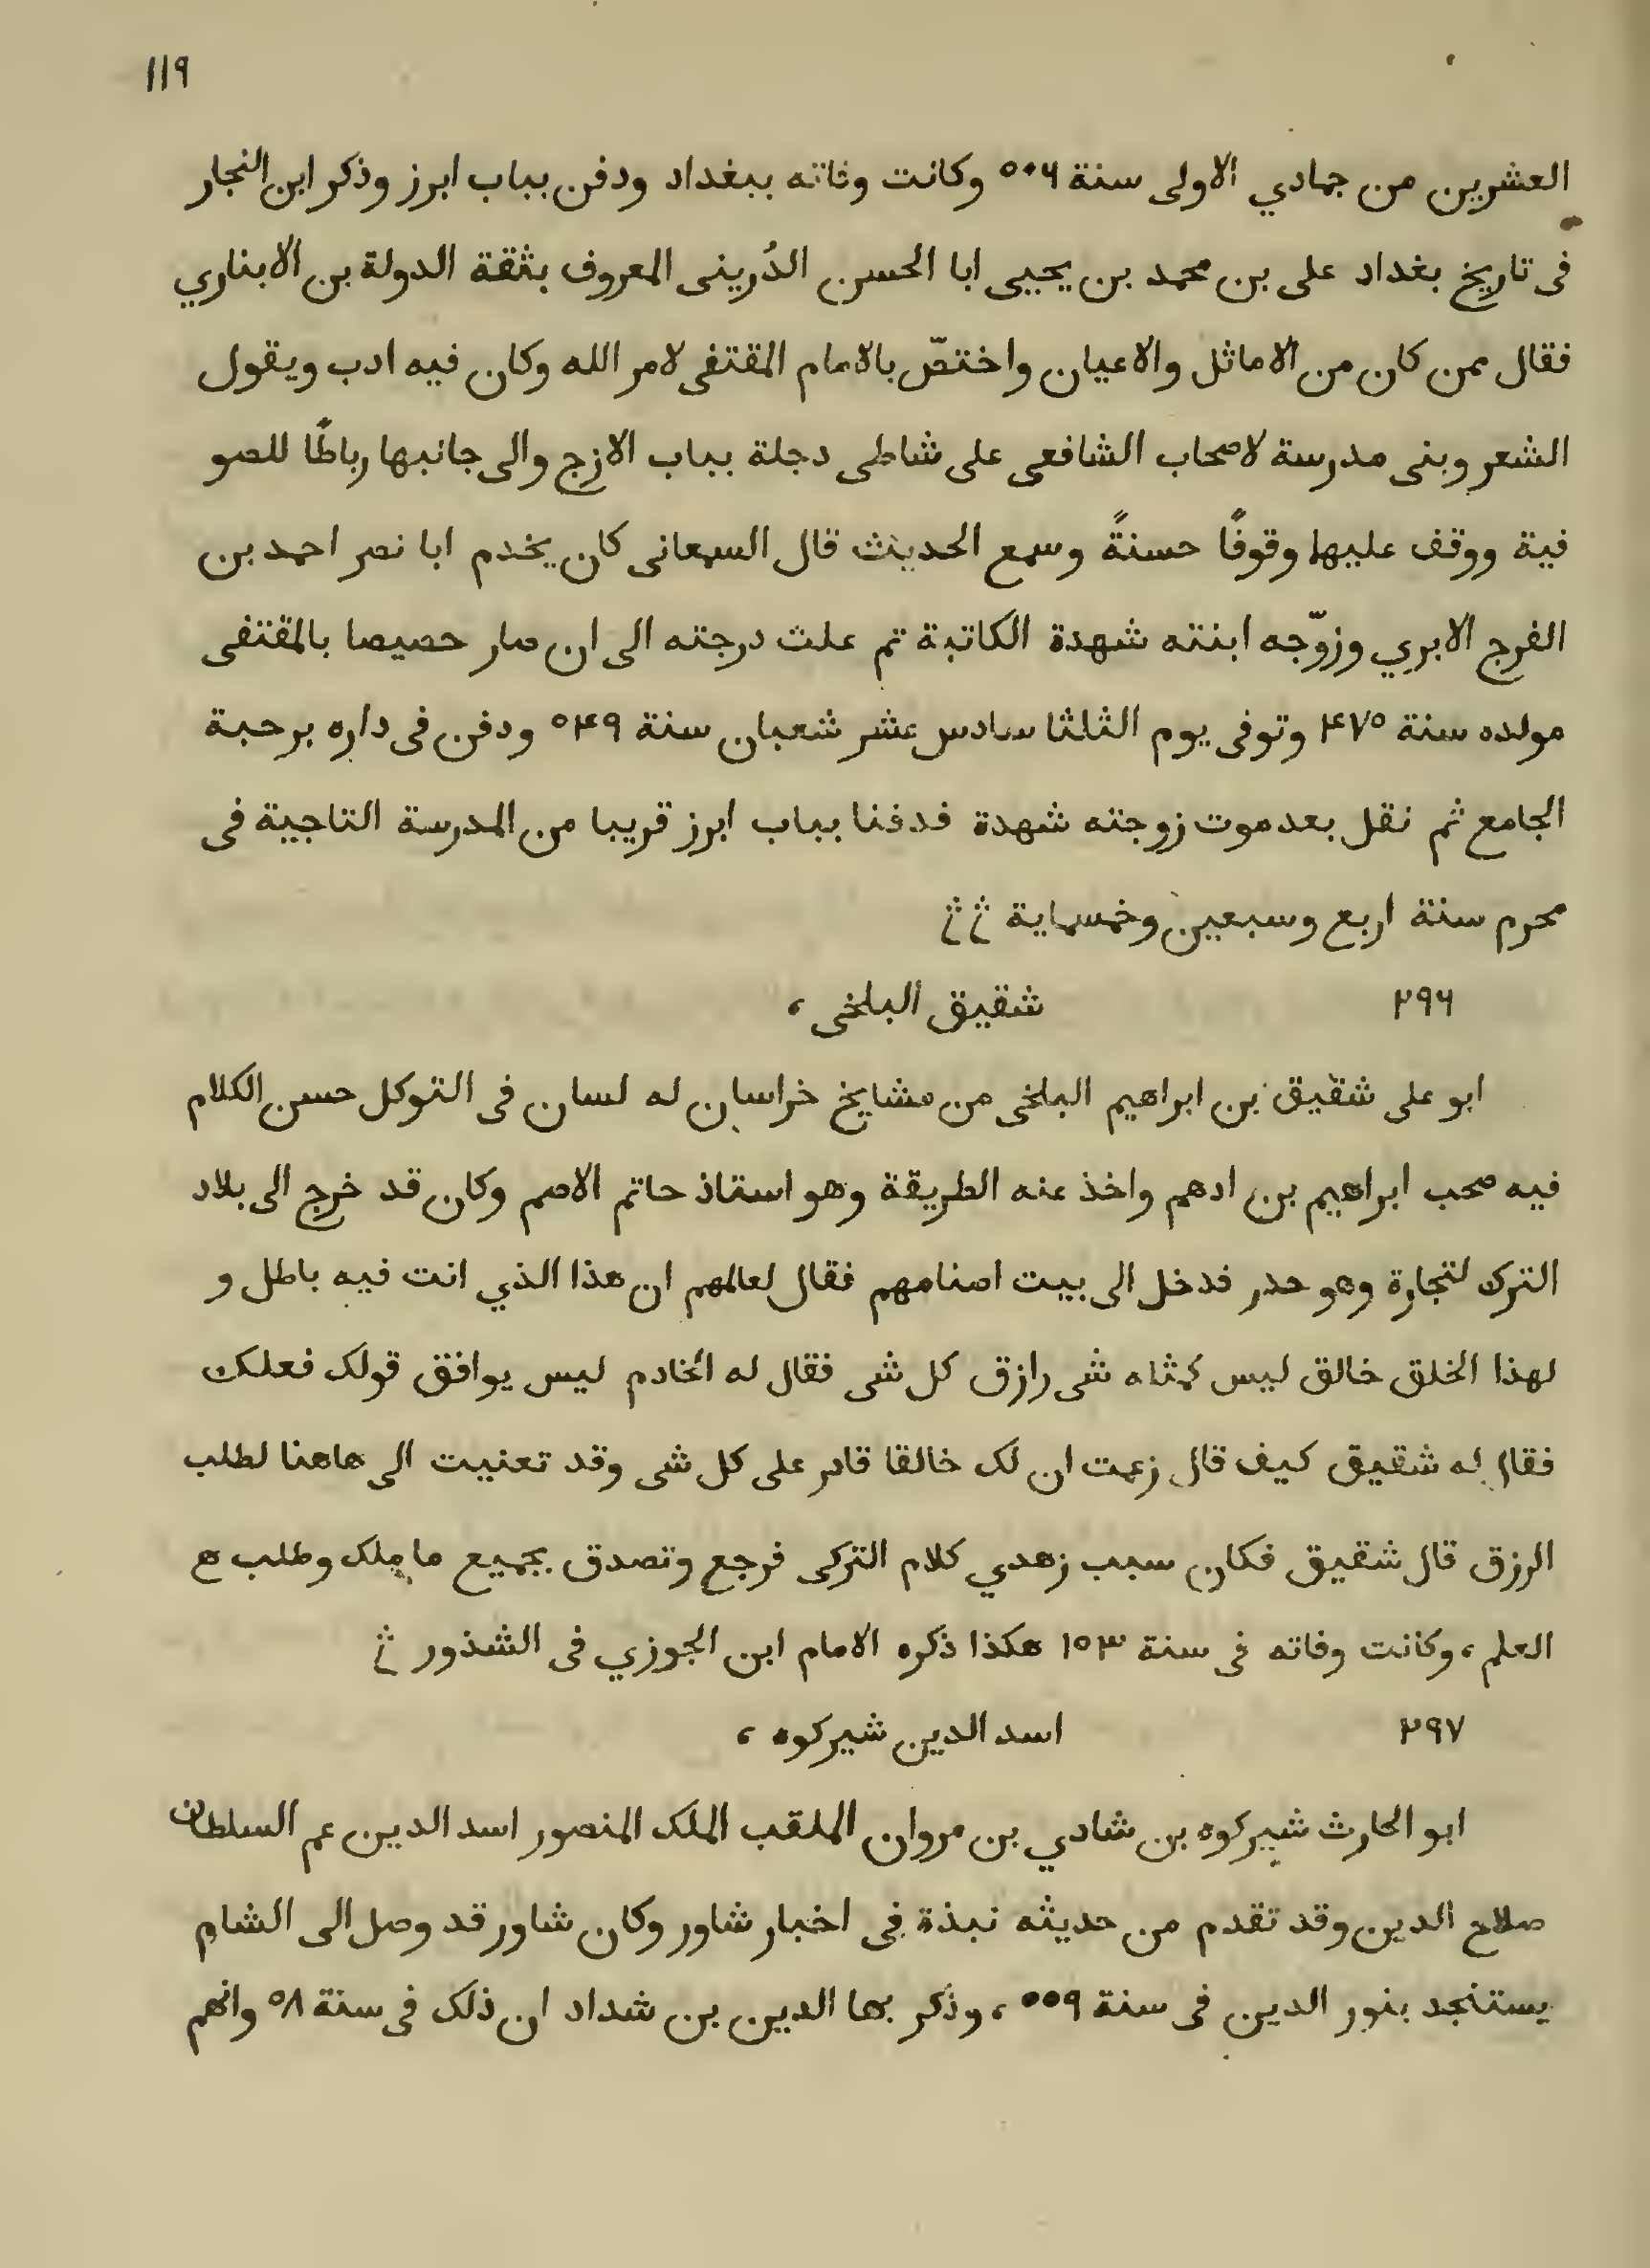 ١١٩
العشرين من جمادي الاولى سنة ٥٠٦ وكانت وفاته ببغداد ودفن بباب ابرز وذكر ابن النجار
فى تاريخ بغداد على بن محمد بن يحيى ابا الحسن الدُرينى المعروف بثقة الدولة بن الابناري
فقال ممن كان من الاماثل والاعيان واختصّ بالامام المقتفى لامر الله وكان فيه ادب ويقول
الشعر وبنى مدرسة لاصحاب الشافعى على شاطى دجلة بباب الازج والى جانبها رباطًا للصو
فية ووقف عليها وقوفًا حسنةً وسمع الحديث قال السمعانى كان يخدم ابا نصر احمد بن
الفرج الابري وزوّجه ابنته شهدة الكاتبة تم علت درجته الى ان صار حصيصا بالمقتفى
مولده سنة ٤٧٥ وتوفى يوم الثلثا سادس عشر شعبان سنة ٥٤٩ ودفن فى داره برحبة
الجامع ثم نقل بعد موت زوجته شهدة فدفنا بباب ابرز قريبا من المدرسة التاجية فى
محرم سنة اربع وسبعين وخمسماية
٢٩٦ شقيق البلخى ،
ابو على شقيق بن ابراهيم البلخى من مشايخ خراسان له لسان فى التوكل حسن الكلام
فيه صحب ابراهيم بن ادهم واخذ عنه الطريقة وهو استاذ حاتم الاصم وكان قد خرج الى بلاد
الترك لتجارة وهو حدر فدخل الى بيت اصنامهم فقال لعالمهم ان هذا الذي انت فيه باطل و
لهذا الخلق خالق ليس كمثله شى رازق كل شى فقال له الخادم ليس يوافق قولك فعلك
فقال له شقيق كيف قال زعمت ان لك خالقا قادر على كل شى وقد تعنيت الى هاهنا لطلب
الرزق قال شقيق فكان سبب زهدي كلام التركى فرجع وتصدق بجميع ما ملك وطلب
العلم ، وكانت وفاته فى سنة ١٥٣ هكذا ذكره الامام ابن الجوزي فى الشذور
٢٩٧ اسد الدين شيركوه ،
ابو الحارث شيركوه بن شادي بن مروان الملقب الملك المنصور اسد الدين عم السلطان
صلاح الدين وقد تقدم من حديثه نبذة فى اخبار شاور وكان شاور قد وصل الى الشام
يستنجد بنور الدين فى سنة ٥٥٩ ، وذكر بها الدين بن شداد ان ذلك فى سنة ٥٨ وانهم